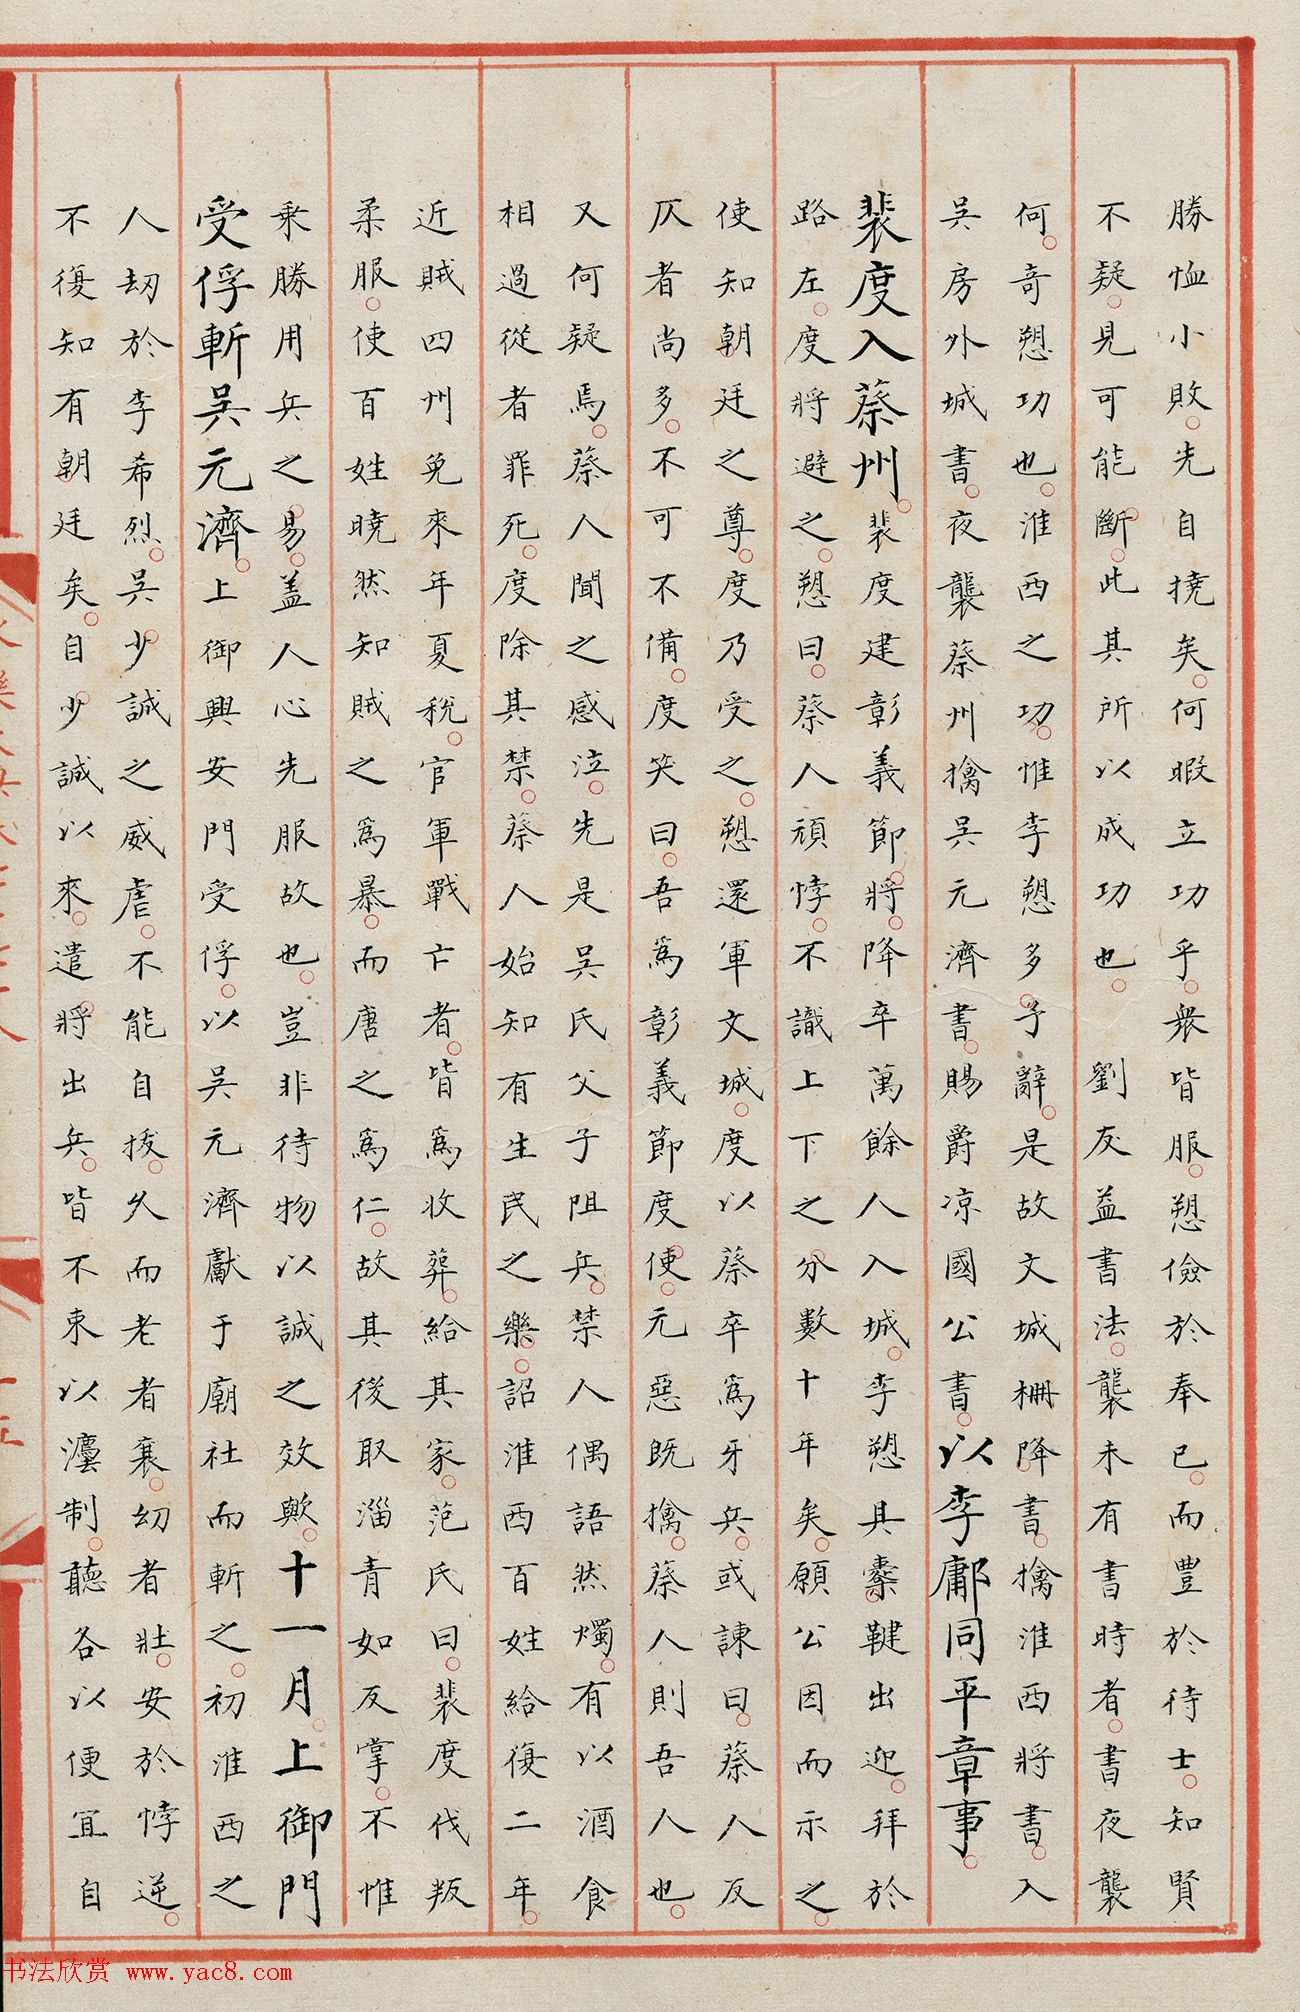 勝恤小敗先自撓矣何暇立功乎衆皆服愬儉於奉已而豊於待士知賢
不疑見可能斷此其所以成功也劉友益書法襲未有書時者書夜襲
何奇愬功也淮西之功惟李愬多予辭是故文城柵降書擒淮西將書入
吳房外城書夜襲蔡州擒吳元濟書賜爵凉國公書以李鄘同平章事
裴度入蔡州裴度建彰義節將降卒萬餘人入城李愬具櫜鞬出迎拜於
路左度將避之愬曰蔡人頑悖不識上下之分數十年矣願公因而示之
使知朝廷之尊度乃受之愬還軍文城度以蔡卒爲牙兵或諫曰蔡人反
仄者尚多不可不備度笑曰吾爲彰義節度使元惡既擒蔡人則吾人也
又何疑焉蔡人聞之感泣先是吳氏父子阻兵禁人偶語然燭有以酒食
相過從者罪死度除其禁蔡人始知有生民之樂詔淮西百姓給復二年
近賊四州免來年夏稅官軍戰亡者皆爲收葬給其家范氏曰裴度伐叛
柔服使百姓曉然知賊之爲暴而唐之爲仁故其後取淄青如反掌不惟
乘勝用兵之易盖人心先服故也豈非待物以誠之效歟十一月上御門
受俘斬吳元濟上御興安門受俘以吳元濟獻于廟社而斬之初淮西之
人刼於李希烈吳少誠之威虐不能自拔久而老者衰幼者壯安於悖逆
不復知有朝廷矣自少誠以來遣將出兵皆不束以灋制聽各以便宜自
书法欣赏 www.yac8.com